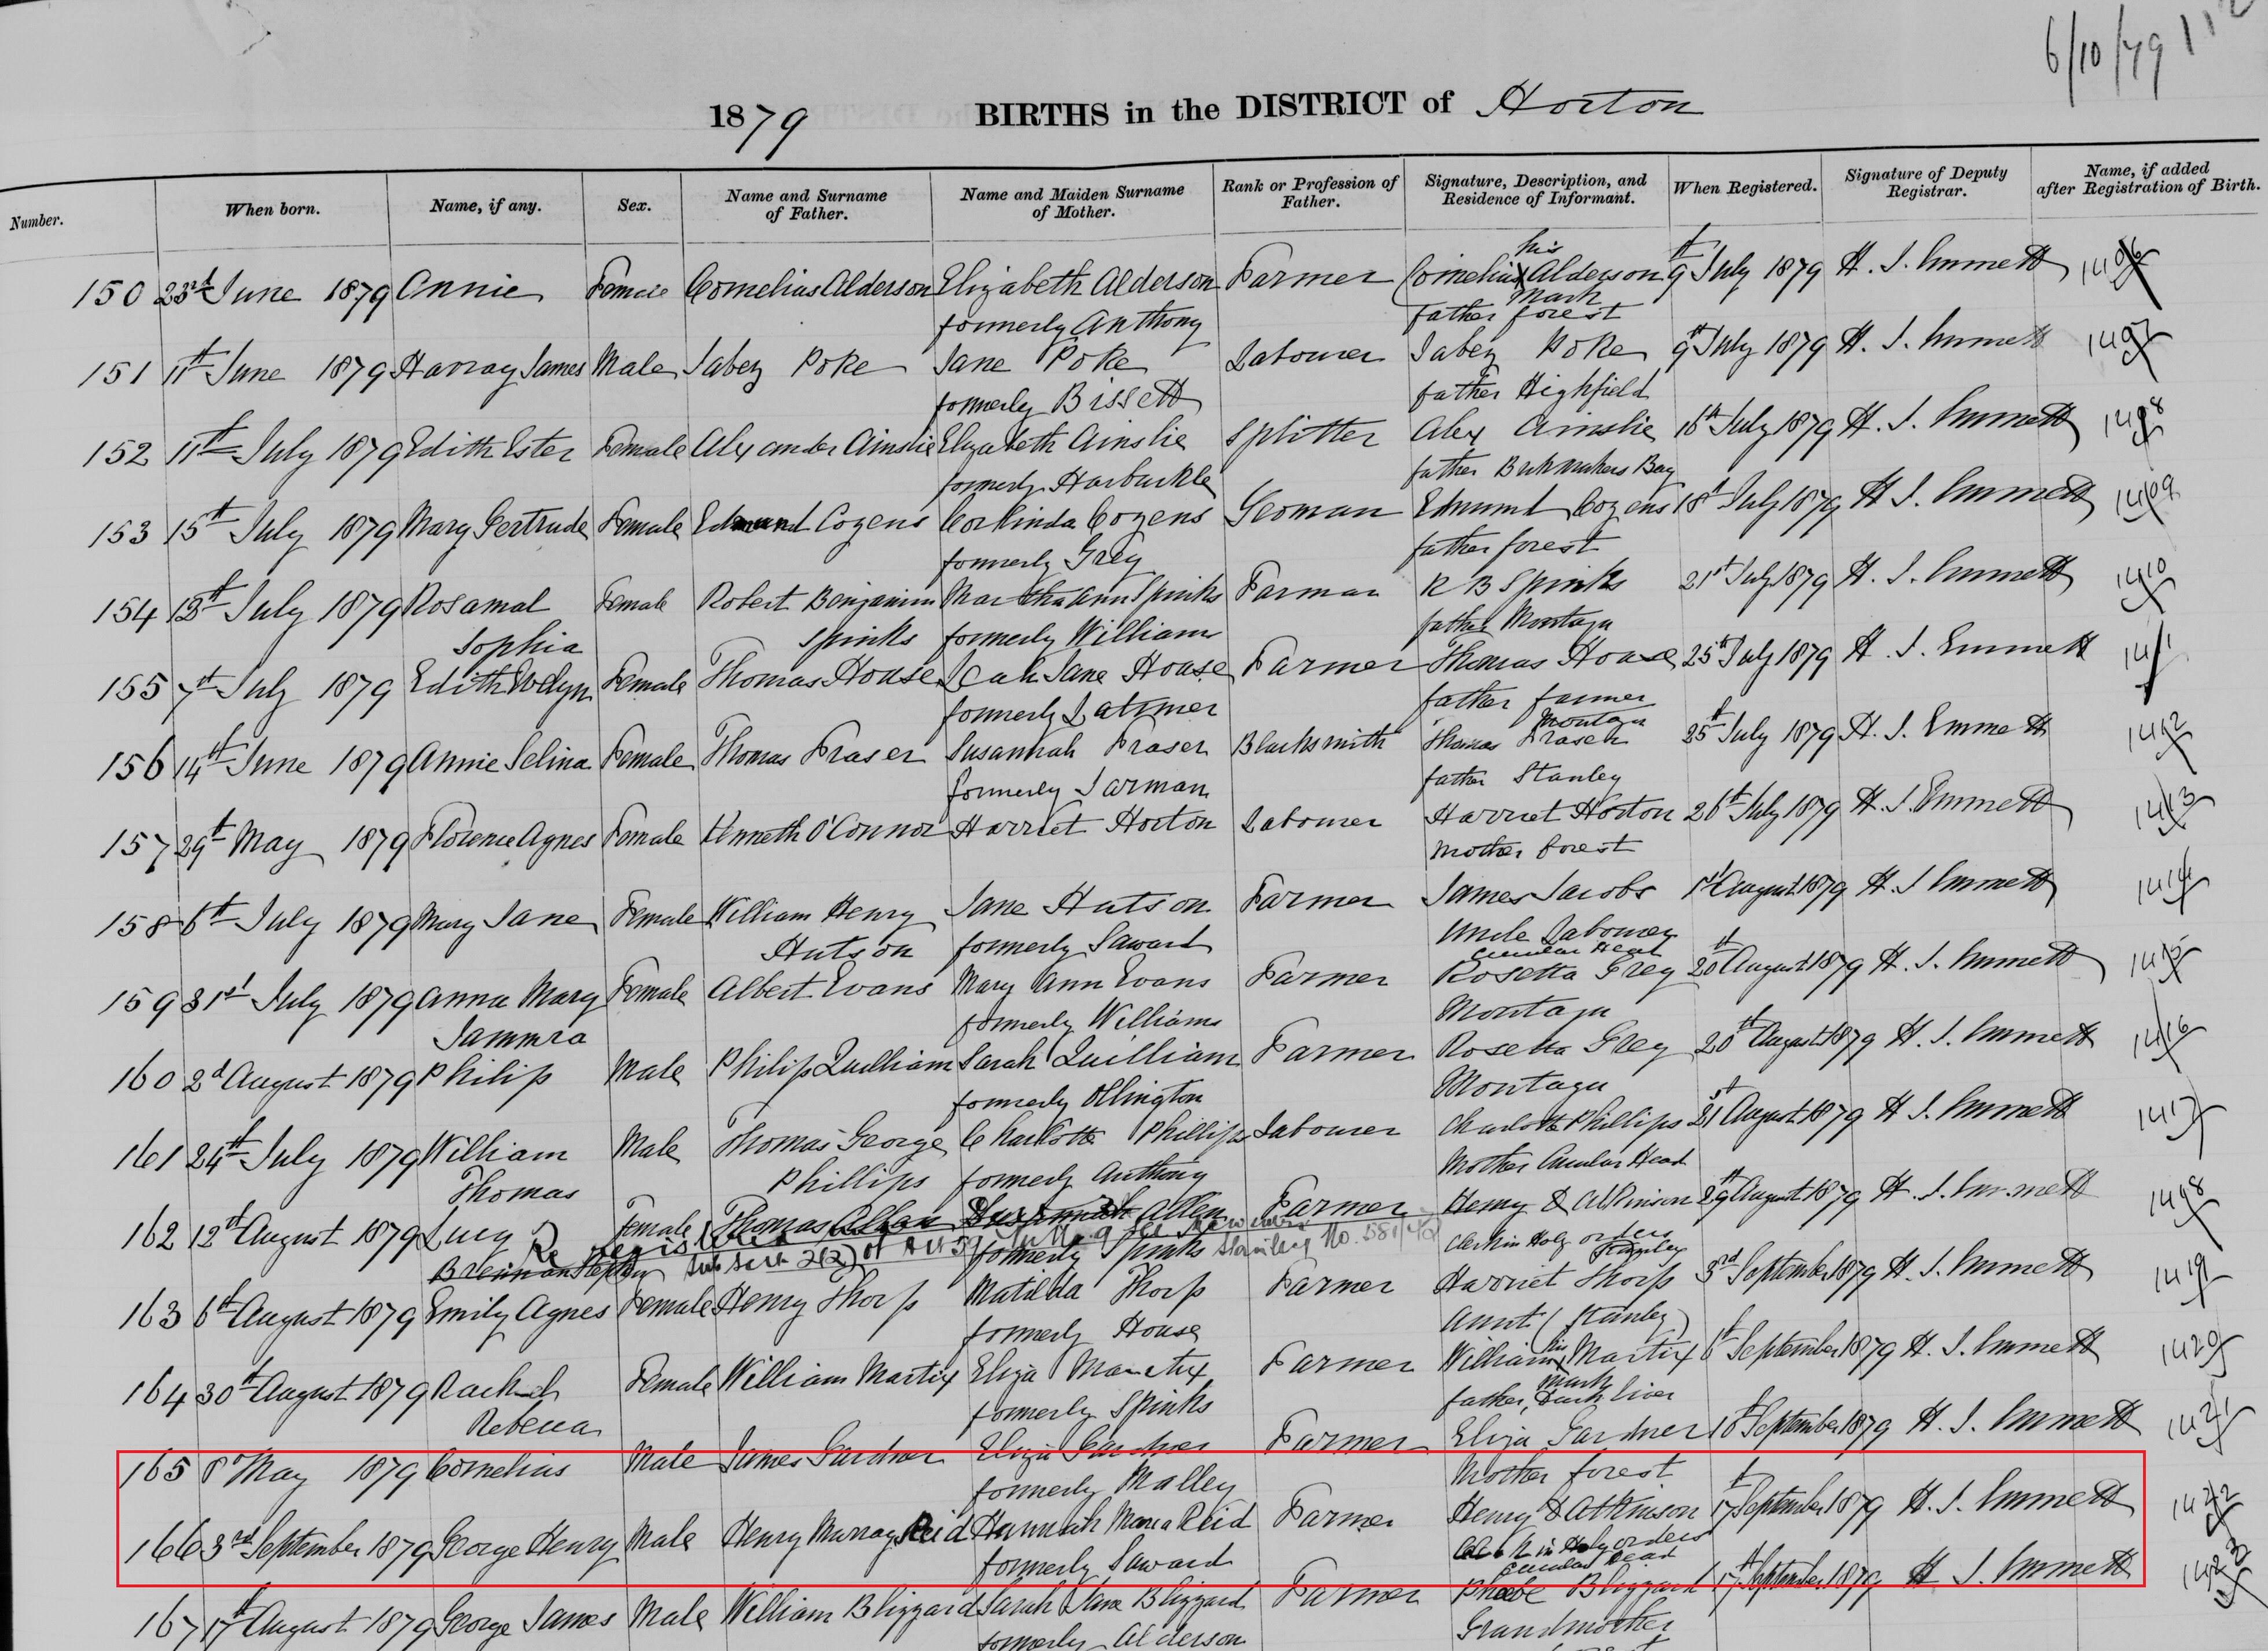 6/10/79 112
1879 BIRTHS in the DISTRICT of Horton
Number. When born. Name, if any. Sex. Name and Surname of Father. Name and Maiden Surname of Mother. Rank or Profession of Father. Signature, Description, and Residence of Informant. When Registered. Signature of Deputy Registrar. Name, if added after Registration of Birth.
his
150 23rd June 1879 Annie Female Cornelius Alderson Elizabeth Alderson Farmer Cornelius X Alderson 9th July 1879 H. J. Emmett 1406
mark
formerly Anthony father forest
151 11th June 1879 Harray James Male Jabez Poke Jane Poke Labourer Jabez Poke 9th July 1879 H. J. Emmett 1407
formerly Bissett father Highfield
152 11th July 1879 Edith Ester Female Alexander Ainslie Elizabeth Ainslie Splitter Alex Ainslie 16th July 1879 H. J. Emmett 1408
formerly Harbuckle father Brickmakers Bay
153 15th July 1879 Mary Gertrude Female Edmund Cozens Corlinda Cozens Yeoman Edmund Cozens 18th July 1879 H. J. Emmett 1409
formerly Grey father forest
154 13th July 1879 Rosamal Female Robert Benjamin Martha Ann Spinks Farmer R B Spinks 21st July 1879 H. J. Emmett 1410
Sophia Spinks formerly William father Montagu
155 7th July 1879 Edith Evelyn Female Thomas House Leah Jane House Farmer Thomas House 25th July 1879 H. J. Emmett 1411
formerly Latimer father farmer
Montagu
156 14th June 1879 Annie Selina Female Thomas Fraser Susannah Fraser Blacksmith Thomas Fraser 25th July 1879 H. J. Emmett 1412
formerly Jarman father Stanley
157 29th May 1879 Florence Agnes Female Kenneth O'Connor Harriet Horton Labourer Harriet Horton 26th July 1879 H. J. Emmett 1413
mother forest
158 6th July 1879 Mary Jane Female William Henry Jane Hutson Farmer James Jacobs 1st August 1879 H. J. Emmett 1414
Hutson formerly Saward Uncle Labourer
Circular Head
159 31st July 1879 Anna Mary Female Albert Evans Mary Ann Evans Farmer Rosetta Grey 20th August 1879 H. J. Emmett 1415
Jammra formerly Williams Montagu
160 2d August 1879 Philip Male Philip Quilliam Sarah Quilliam Farmer Rosetta Grey 20th August 1879 H. J. Emmett 1416
formerly Ollington Montagu
161 24th July 1879 William Male Thomas George Charlotte Phillips Labourer Charlotte Phillips 21st August 1879 H. J. Emmett 1417
Thomas Phillips formerly Anthony Mother Circular Head
162 12th August 1879 Lucy Female Thomas Allen Allen Farmer Henry D Atkinson 29th August 1879 H. J. Emmett 1418
Re registered
Brennan formerly Spinks Stanley No. Clerk in Holy orders
Stanley
163 6th August 1879 Emily Agnes Female Henry Thorp Matilda Thorp Farmer Harriet Thorp 3rd September 1879 H. J. Emmett 1419
formerly House Aunt (Stanley)
his
164 30th August 1879 Rachel Female William Martix Eliza Martix Farmer William X Martix 6th September 1879 H. J. Emmett 1420
mark
Rebecca formerly Spinks father, Duck River
165 8th May 1879 Cornelius Male James Gardner Eliza Gardner Farmer Eliza Gardner 10th September 1879 H. J. Emmett 1421
formerly Malley Mother forest
166 3rd September 1879 George Henry Male Henry Murray Reid Hannah Maria Reid Farmer Henry D Atkinson 17th September 1879 H. J. Emmett 1422
formerly Saward Clerk in Holy orders
Circular Head
167 17th August 1879 George James Male William Blizzard Sarah Jane Blizzard Farmer Phoebe Blizzard 17th September 1879 H. J. Emmett 1423
formerly Alderson Grandmother
forest